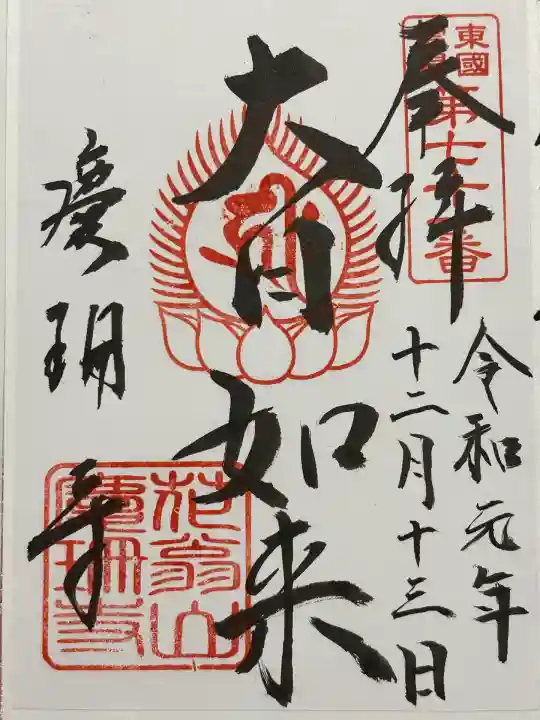 奉拝
東國
第七十番
令和元年
十二月十三日
大日如来
慶珊寺
花翁山
慶珊寺